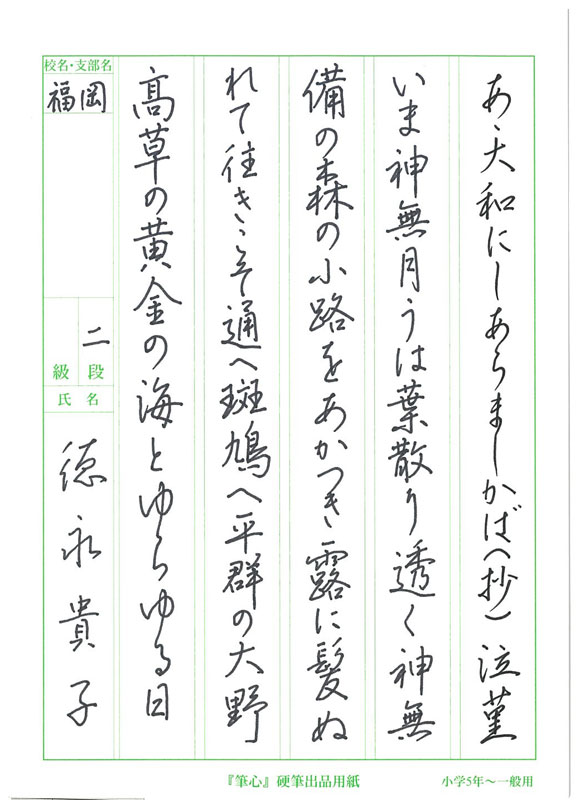 あゝ大和にしあらましかば(抄) 泣菫
いま神無月うは葉散り透く神無
備の森の小路をあかつき露に髪ぬ
れて往きこそ通へ斑鳩へ平群の大野
高草の黄金の海とゆらゆる日
校名・支部名
福岡
二
段
級
氏名
徳永貴子
『筆心』硬筆出品用紙
小学5年～一般用